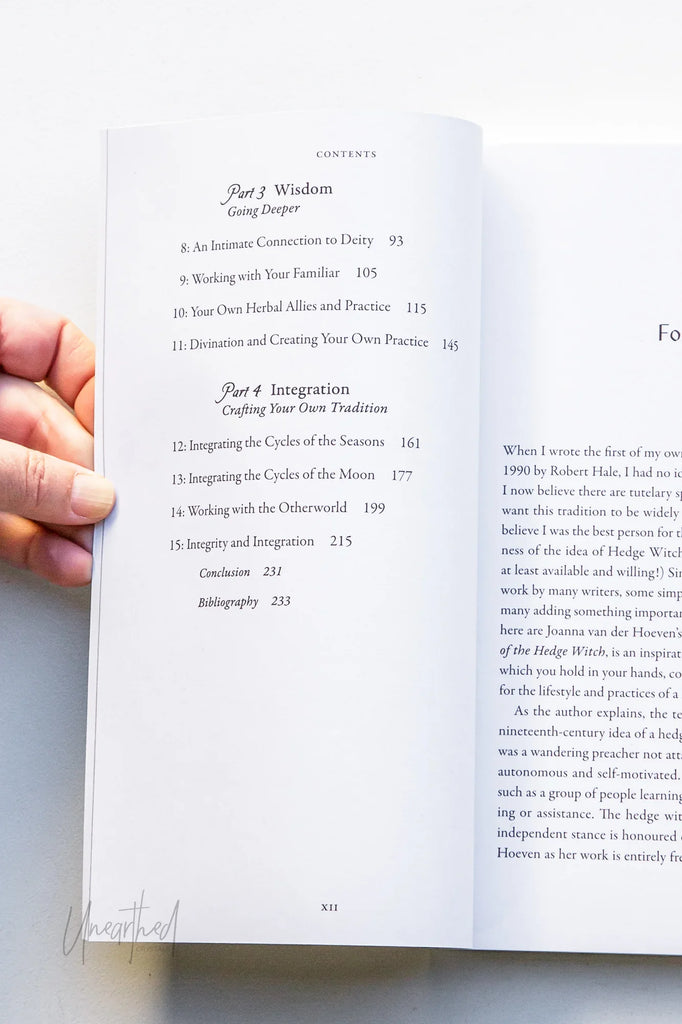 CONTENTS
Part 3 Wisdom
Going Deeper
8: An Intimate Connection to Deity 93
9: Working with Your Familiar 105
10: Your Own Herbal Allies and Practice 115
11: Divination and Creating Your Own Practice 145
Part 4 Integration
Crafting Your Own Tradition
12: Integrating the Cycles of the Seasons 161
13: Integrating the Cycles of the Moon 177
14: Working with the Otherworld 199
15: Integrity and Integration 215
Conclusion 231
Bibliography 233
XII
Fo
When I wrote the first of my ow
1990 by Robert Hale, I had no i
I now believe there are tutelary s
want this tradition to be widely
believe I was the best person for t
ness of the idea of Hedge Witch
at least available and willing!) Si
work by many writers, some simp
many adding something importa
here are Joanna van der Hoeven's
of the Hedge Witch, is an inspirat
which you hold in your hands, co
for the lifestyle and practices of a
As the author explains, the te
nineteenth-century idea of a hedg
was a wandering preacher not att
autonomous and self-motivated.
such as a group of people learning
ing or assistance. The hedge wit
independent stance is honoured
Hoeven as her work is entirely fre
Unearthed